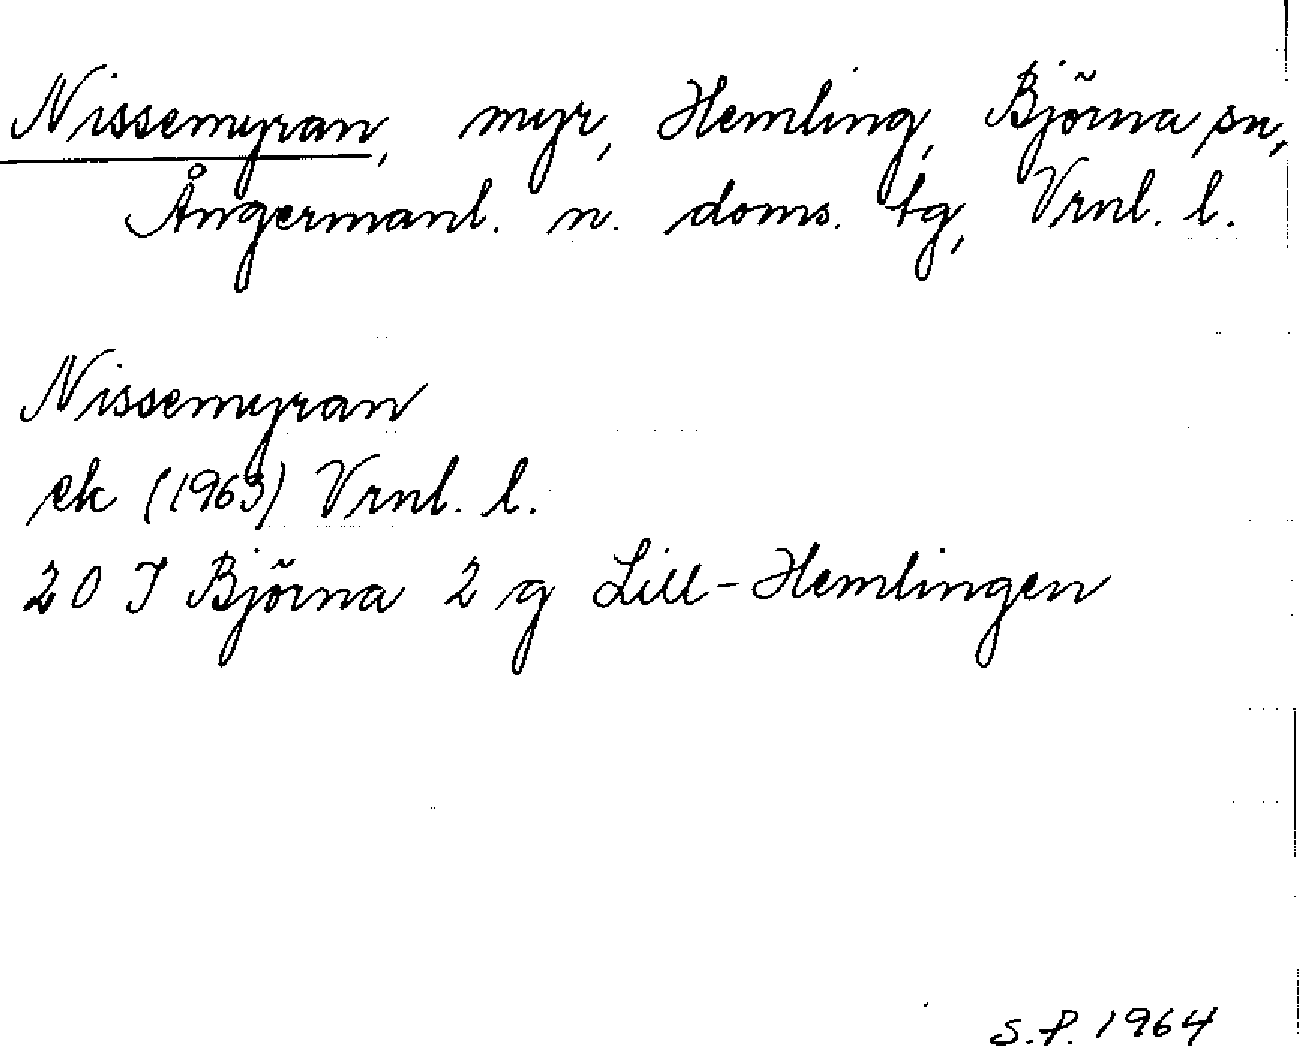 Nissemyran, myr, Hemling, Björna sn,
Ångermanl. n. doms. tg, Vrnl. l.
Nissemyran
ek (1963) Vrnl. l.
20 J Björna 2 g Lill-Hemlingen
S.P. 1964